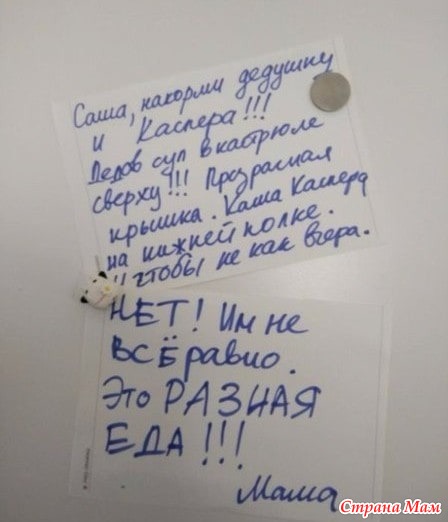 Саша, накорми дедушку
и Каспера!!!
Дедов суп в кастрюле
сверху!!! Прозрасная
крышка. Каша Каспера
на нижней полке.
И чтобы не как вчера.
НЕТ! Им не
ВСЁ равно.
Это РАЗНАЯ
ЕДА!!!
Мама
Страна Мам